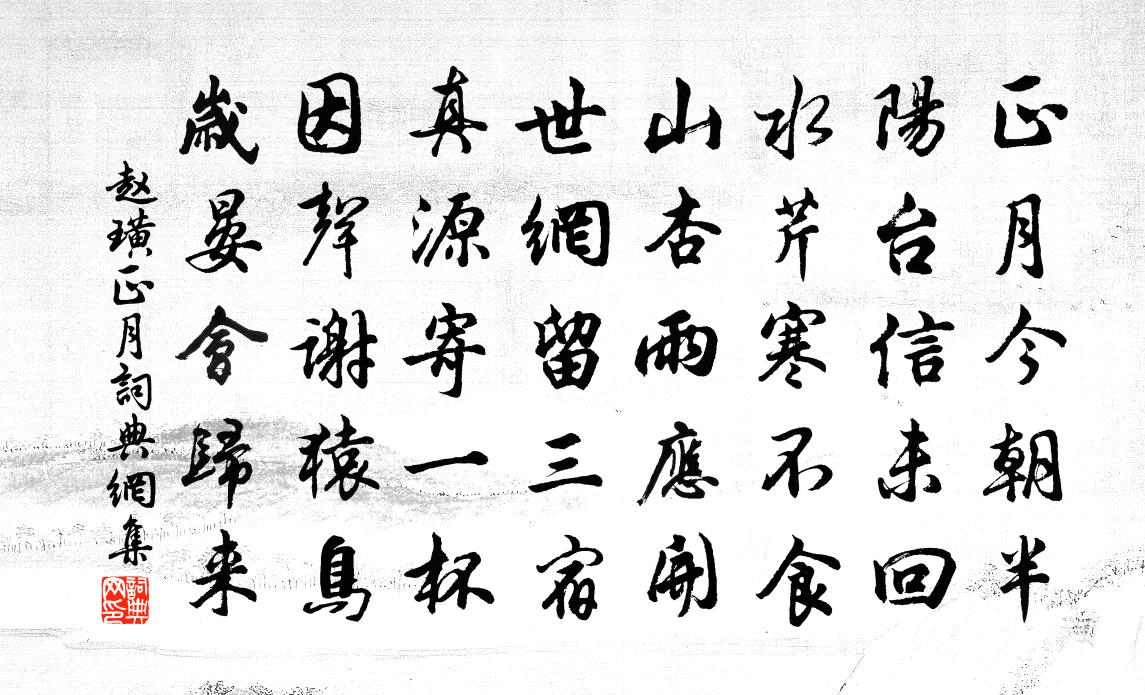 正月今朝半
陽台信未回
水芹寒不食
山杏雨應開
世網留三宿
真源寄一杯
因聲謝猿鳥
歲晏會歸来
赵璜正月詞典網集
詞典网印